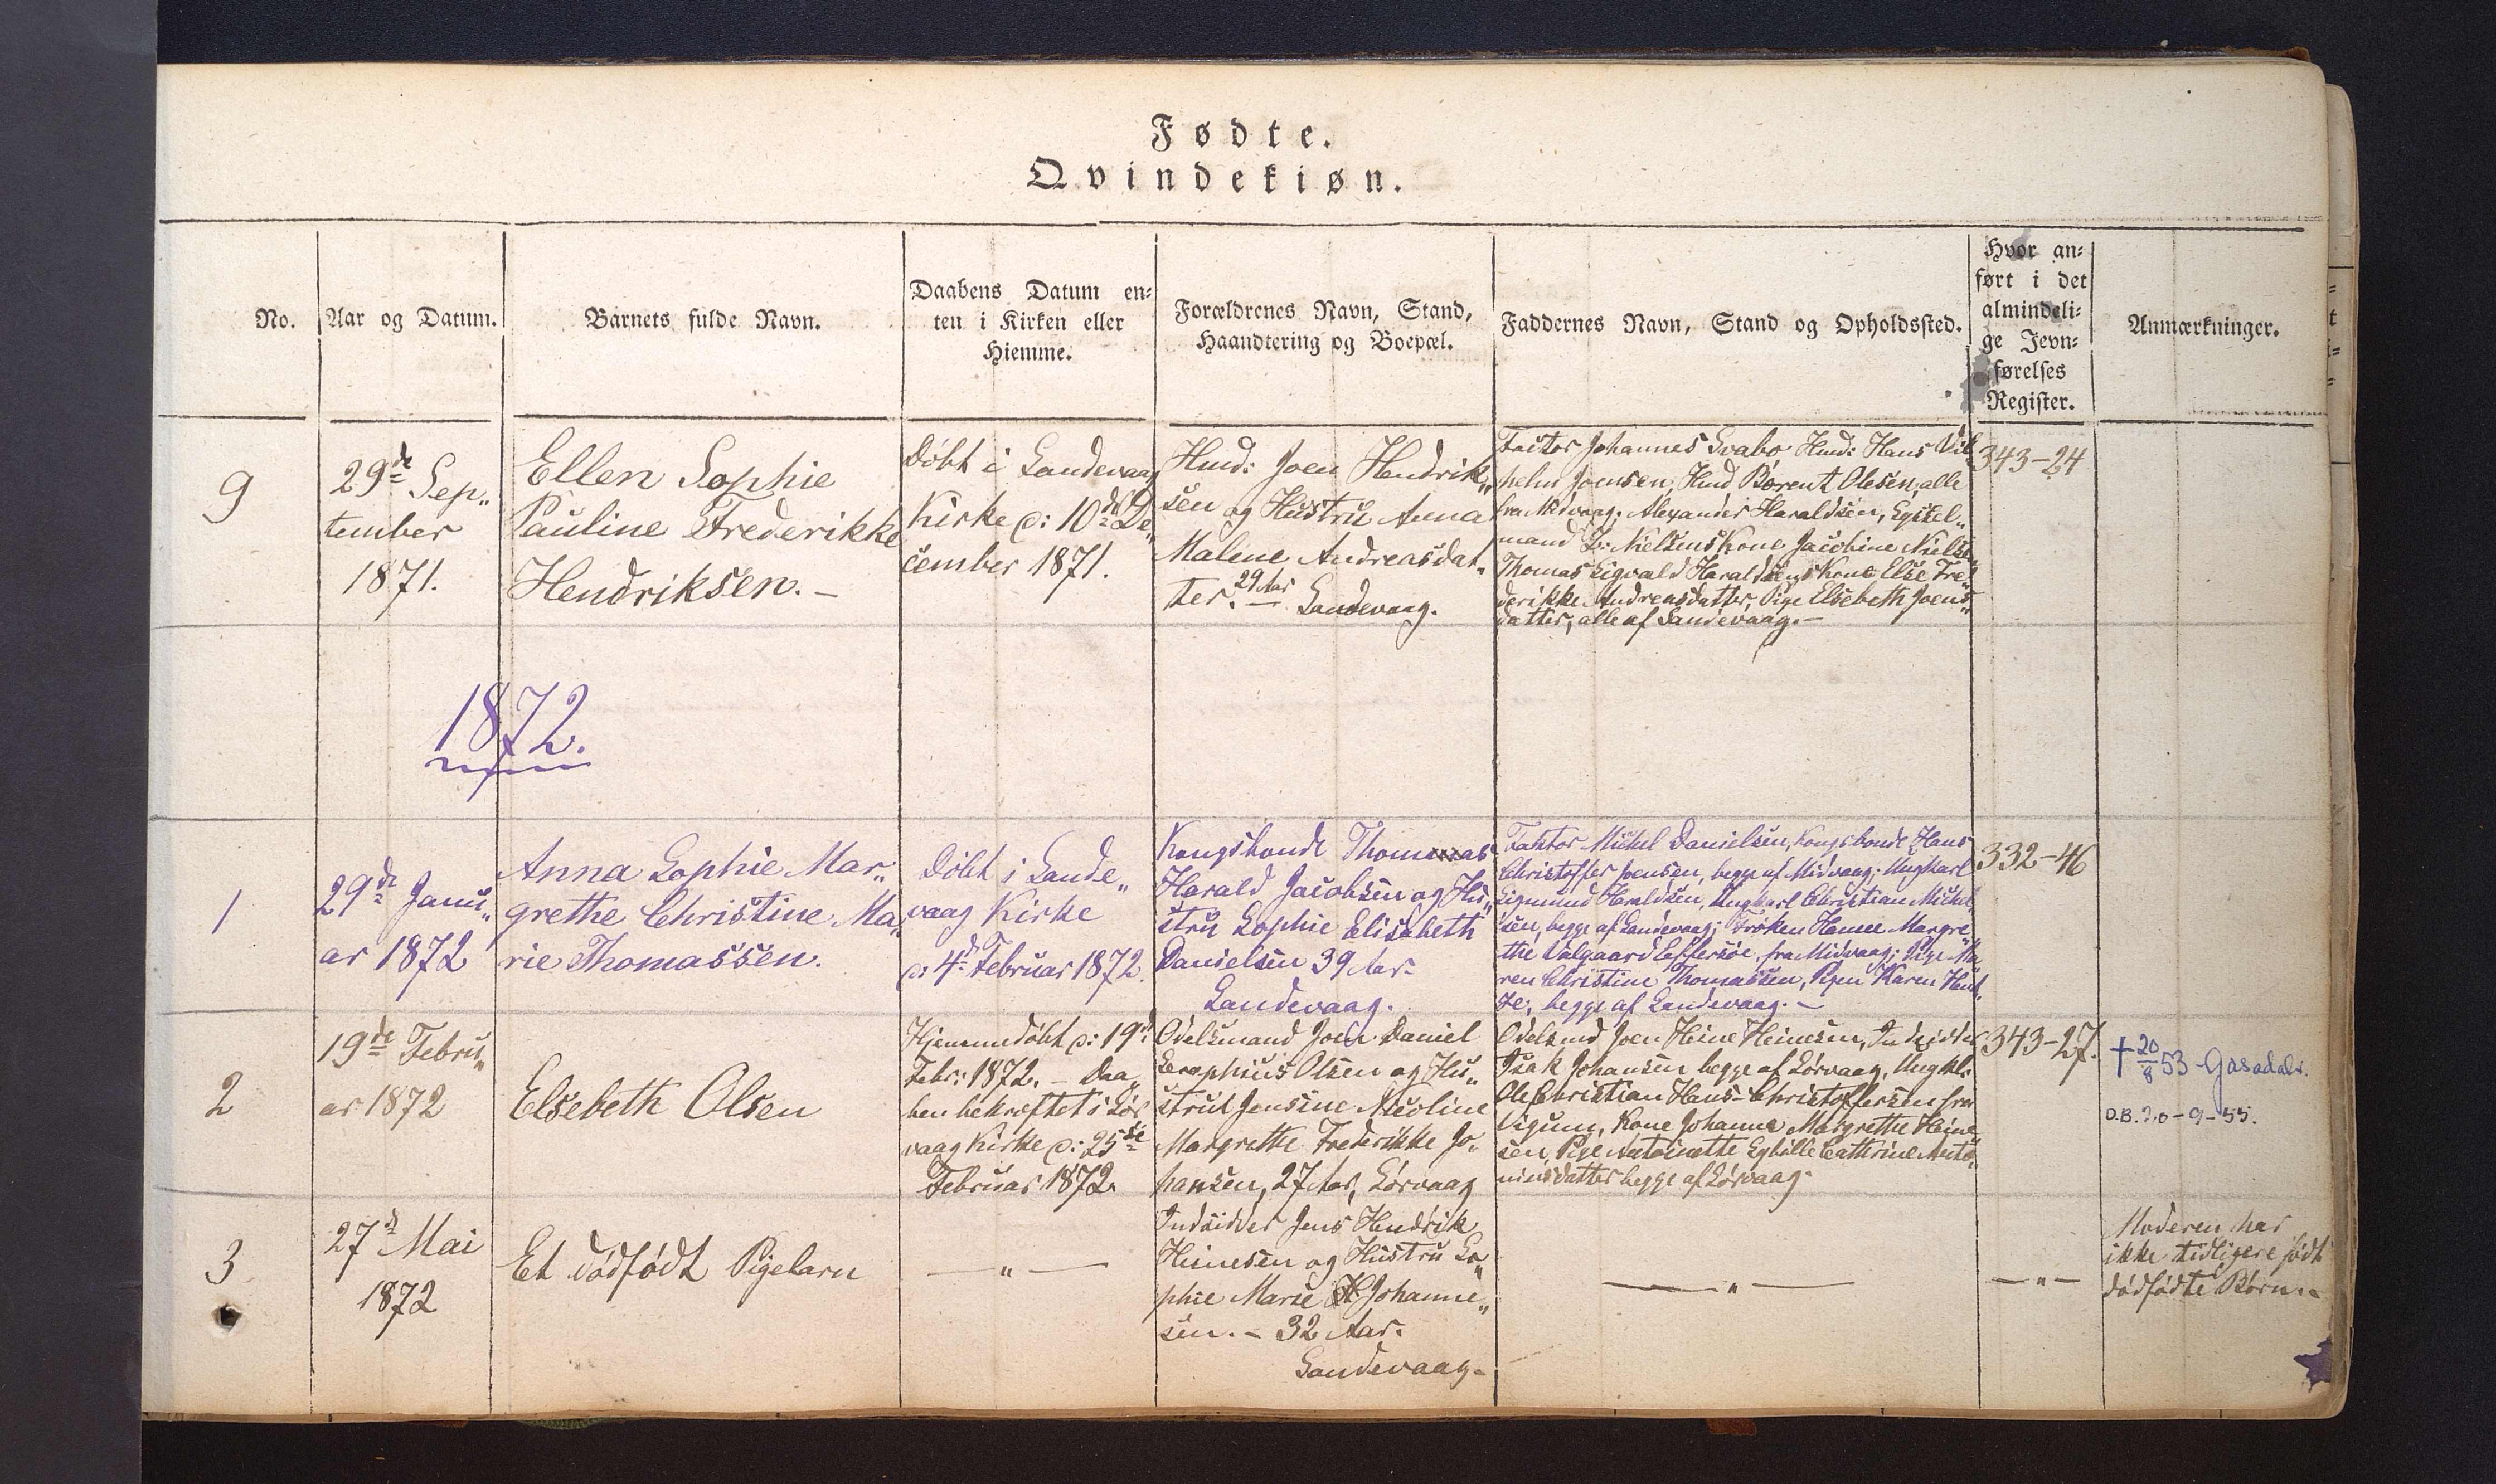 Fødte.
Qvindekiøn.
No.
Aar og Datum.
Barnets fulde Navn.
Daabens Datum en=
ten i Kirken eller
Hiemme.
Forældrenes Navn, Stand,
Haandtering og Boepæl.
Faddernes Navn, Stand og Opholdssted.
Hvor an=
ført i det
almindeli=
ge Jevn=
førelses
Register.
Anmærkninger.
9
29de Sep„
tember
1871.
Ellen Sophie
Pauline Frederikke
Hendriksen. –
Döbt i Sandevaag
Kirke d: 10de De„
cember 1871.
Hmd: Joen Hendrik„
sen og Hustru Anna
Malene Andreasdat„
ter. 29 Aar – Sandevaag.
Factor Johannes Svabo Hmd: Hans Vil„
helm Joensen, Hmd Berent Olesen, alle
fra Midvaag; Alexander Haraldsen, Syssel„
mand L: Nielsens Kone Jacobine Nielsen
Thomas Sigvald Haraldsens Kone Else Fre„
derikke Andreasdatter, Pige Elsebeth Joens„
datter, alle af Sandevaag. –
343–24
1872.
1
29de Janu„
ar 1872
Anna Sophie Mar„
grethe Christine Ma„
rie Thomassen.
Döbt i Sande„
vaag Kirke
d: 4de Februar 1872.
Kongsbonde Thomas
Harald Jacobsen og Hu„
stru Sophie Elisabeth
Danielsen 39 Aar
Sandevaag.
Faktor Michel Danielsen, Kongsbonde Hans
Christoffer Joensen, begge af Midvaag; Ungkarl
Sigmund Haraldsen, Ungkarl Christian Michel„
sen, begge af Sandevaag; Fröken Hanne Margre„
the Valgaard Effersöe, fra Midvaag; Pige Ma„
ren Christine Thomassen, Pigen Karen
begge af Sandevaag. –
332–46
2
19de Febru„
ar 1872
Elsebeth Olsen
Hjemmedöbt d: 19de
Febr: 1872. – Daa„
ben bekræftet i Sör„
vaag Kirke d: 25de
Februar 1872.
Odelsmand Joen Daniel
Olsen og Hu„
stru Jensine Nicoline
Margrethe Frederikke Jo„
hansen, 27 Aar, Sörvaag
Odelsmd Joen Heine Heinesen, Indsidder
Isak Johansen begge af Sörvaag, Ungkl.
Ole Christian Hans-Christoffersen fra
Vigum, Kone Johanne Margrethe Heine„
sen, Pige Antoinette Sybille Cathrine
begge af Sörvaag.
343–27.
† 20/8 53 – Gasadalr.
D.B. 20–9–55.
3
27de Mai
1872
Et dödfödt Pigebarn
— „ —
Indsidder Jens Hendrik
Heinesen og Hustru So„
phie Marie Johanne„
sen. – 32 Aar.
Sandevaag.
— „ —
— „ —
Moderen har
ikke tidligere födt
dödfödte Börn. –